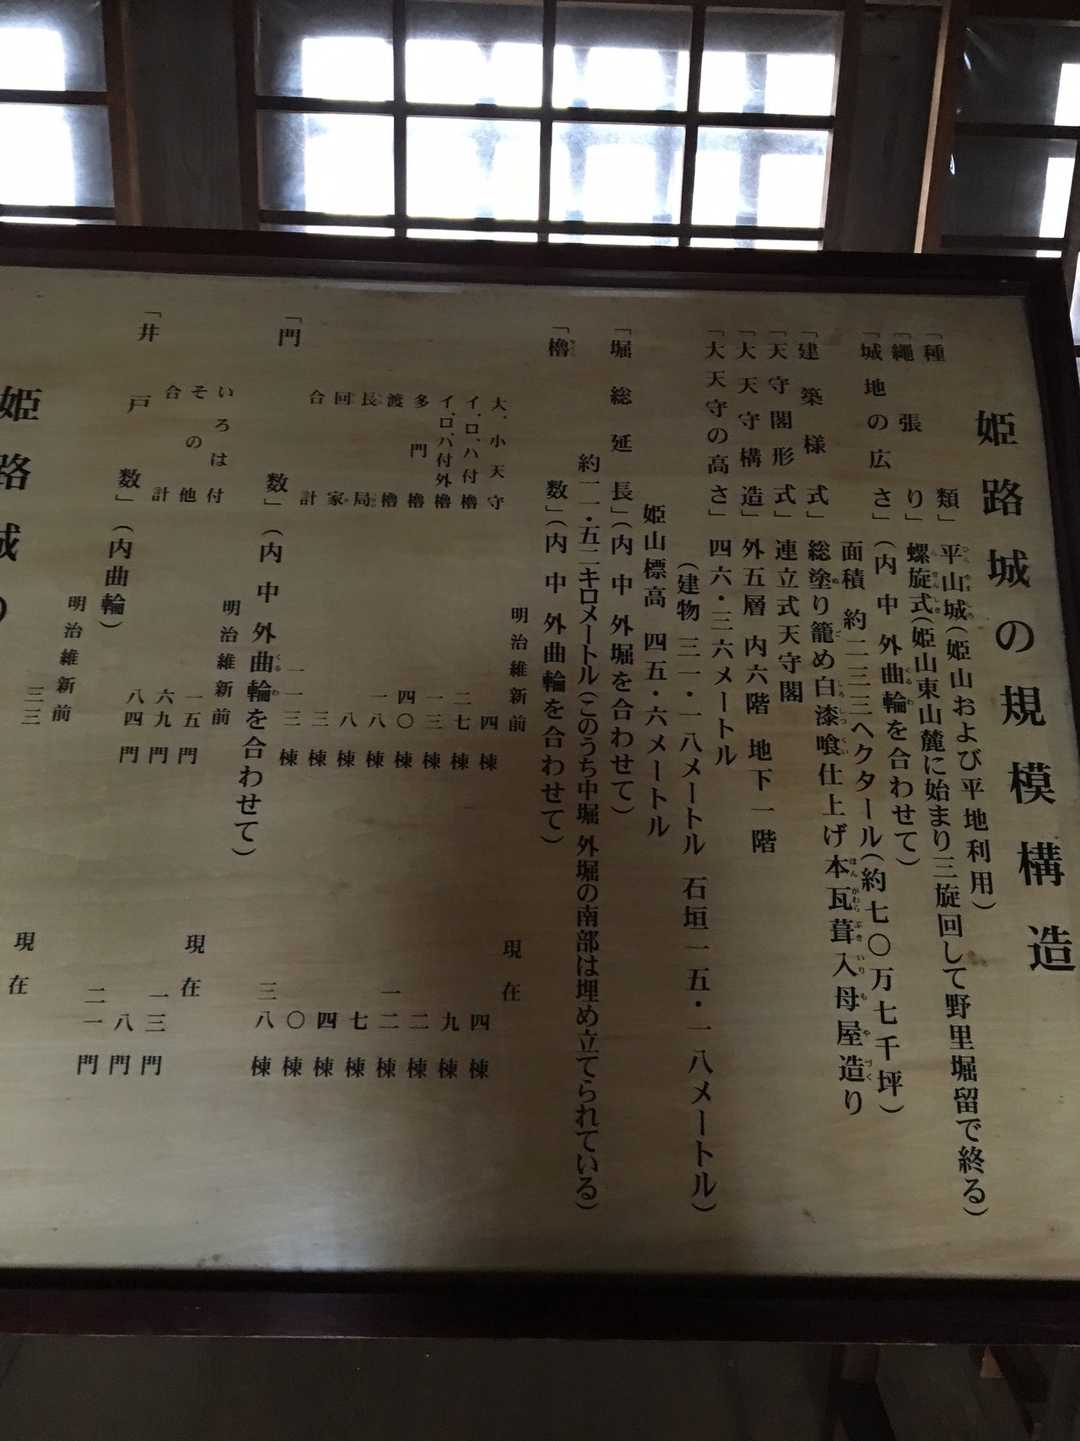 姫路城の規模構造
「種類」平山城(姫山および平地利用)
「縄張り」螺旋式(姫山東山麓に始まり三旋回して野里堀留で終る)
「城地の広さ」(内 中 外曲輪を合わせて)
面積 約二三三ヘクタール(約七〇万七千坪)
「建築様式」総塗り籠め白漆喰仕上げ本瓦葺入母屋造り
「天守閣形式」連立式天守閣
「大天守構造」外五層 内六階 地下一階
「大天守の高さ」四六・三六メートル
(建物 三一・一八メートル 石垣一五・一八メートル)
姫山標高 四五・六メートル
「堀総延長」(内 中 外堀を合わせて)
約一一・五二キロメートル(このうち中堀 外堀の南部は埋め立てられている)
「櫓数」(内 中 外曲輪を合わせて)
明治維新前 現在
大、小天守 四棟 四棟
イ、ロ、ハ付櫓 二七棟 九棟
イ、ロ、ハ付外櫓 一三棟 二棟
多門櫓 四〇棟 一二棟
渡櫓 一八棟 七棟
長局 八棟 四棟
回家 三棟 〇棟
合計 一一三棟 三八棟
「門数」(内 中 外曲輪を合わせて)
明治維新前 現在
いろは付 一五門 一三門
その他 六九門 八門
合計 八四門 二一門
「井戸数」(内曲輪)
明治維新前 現在
三三
姫路城の